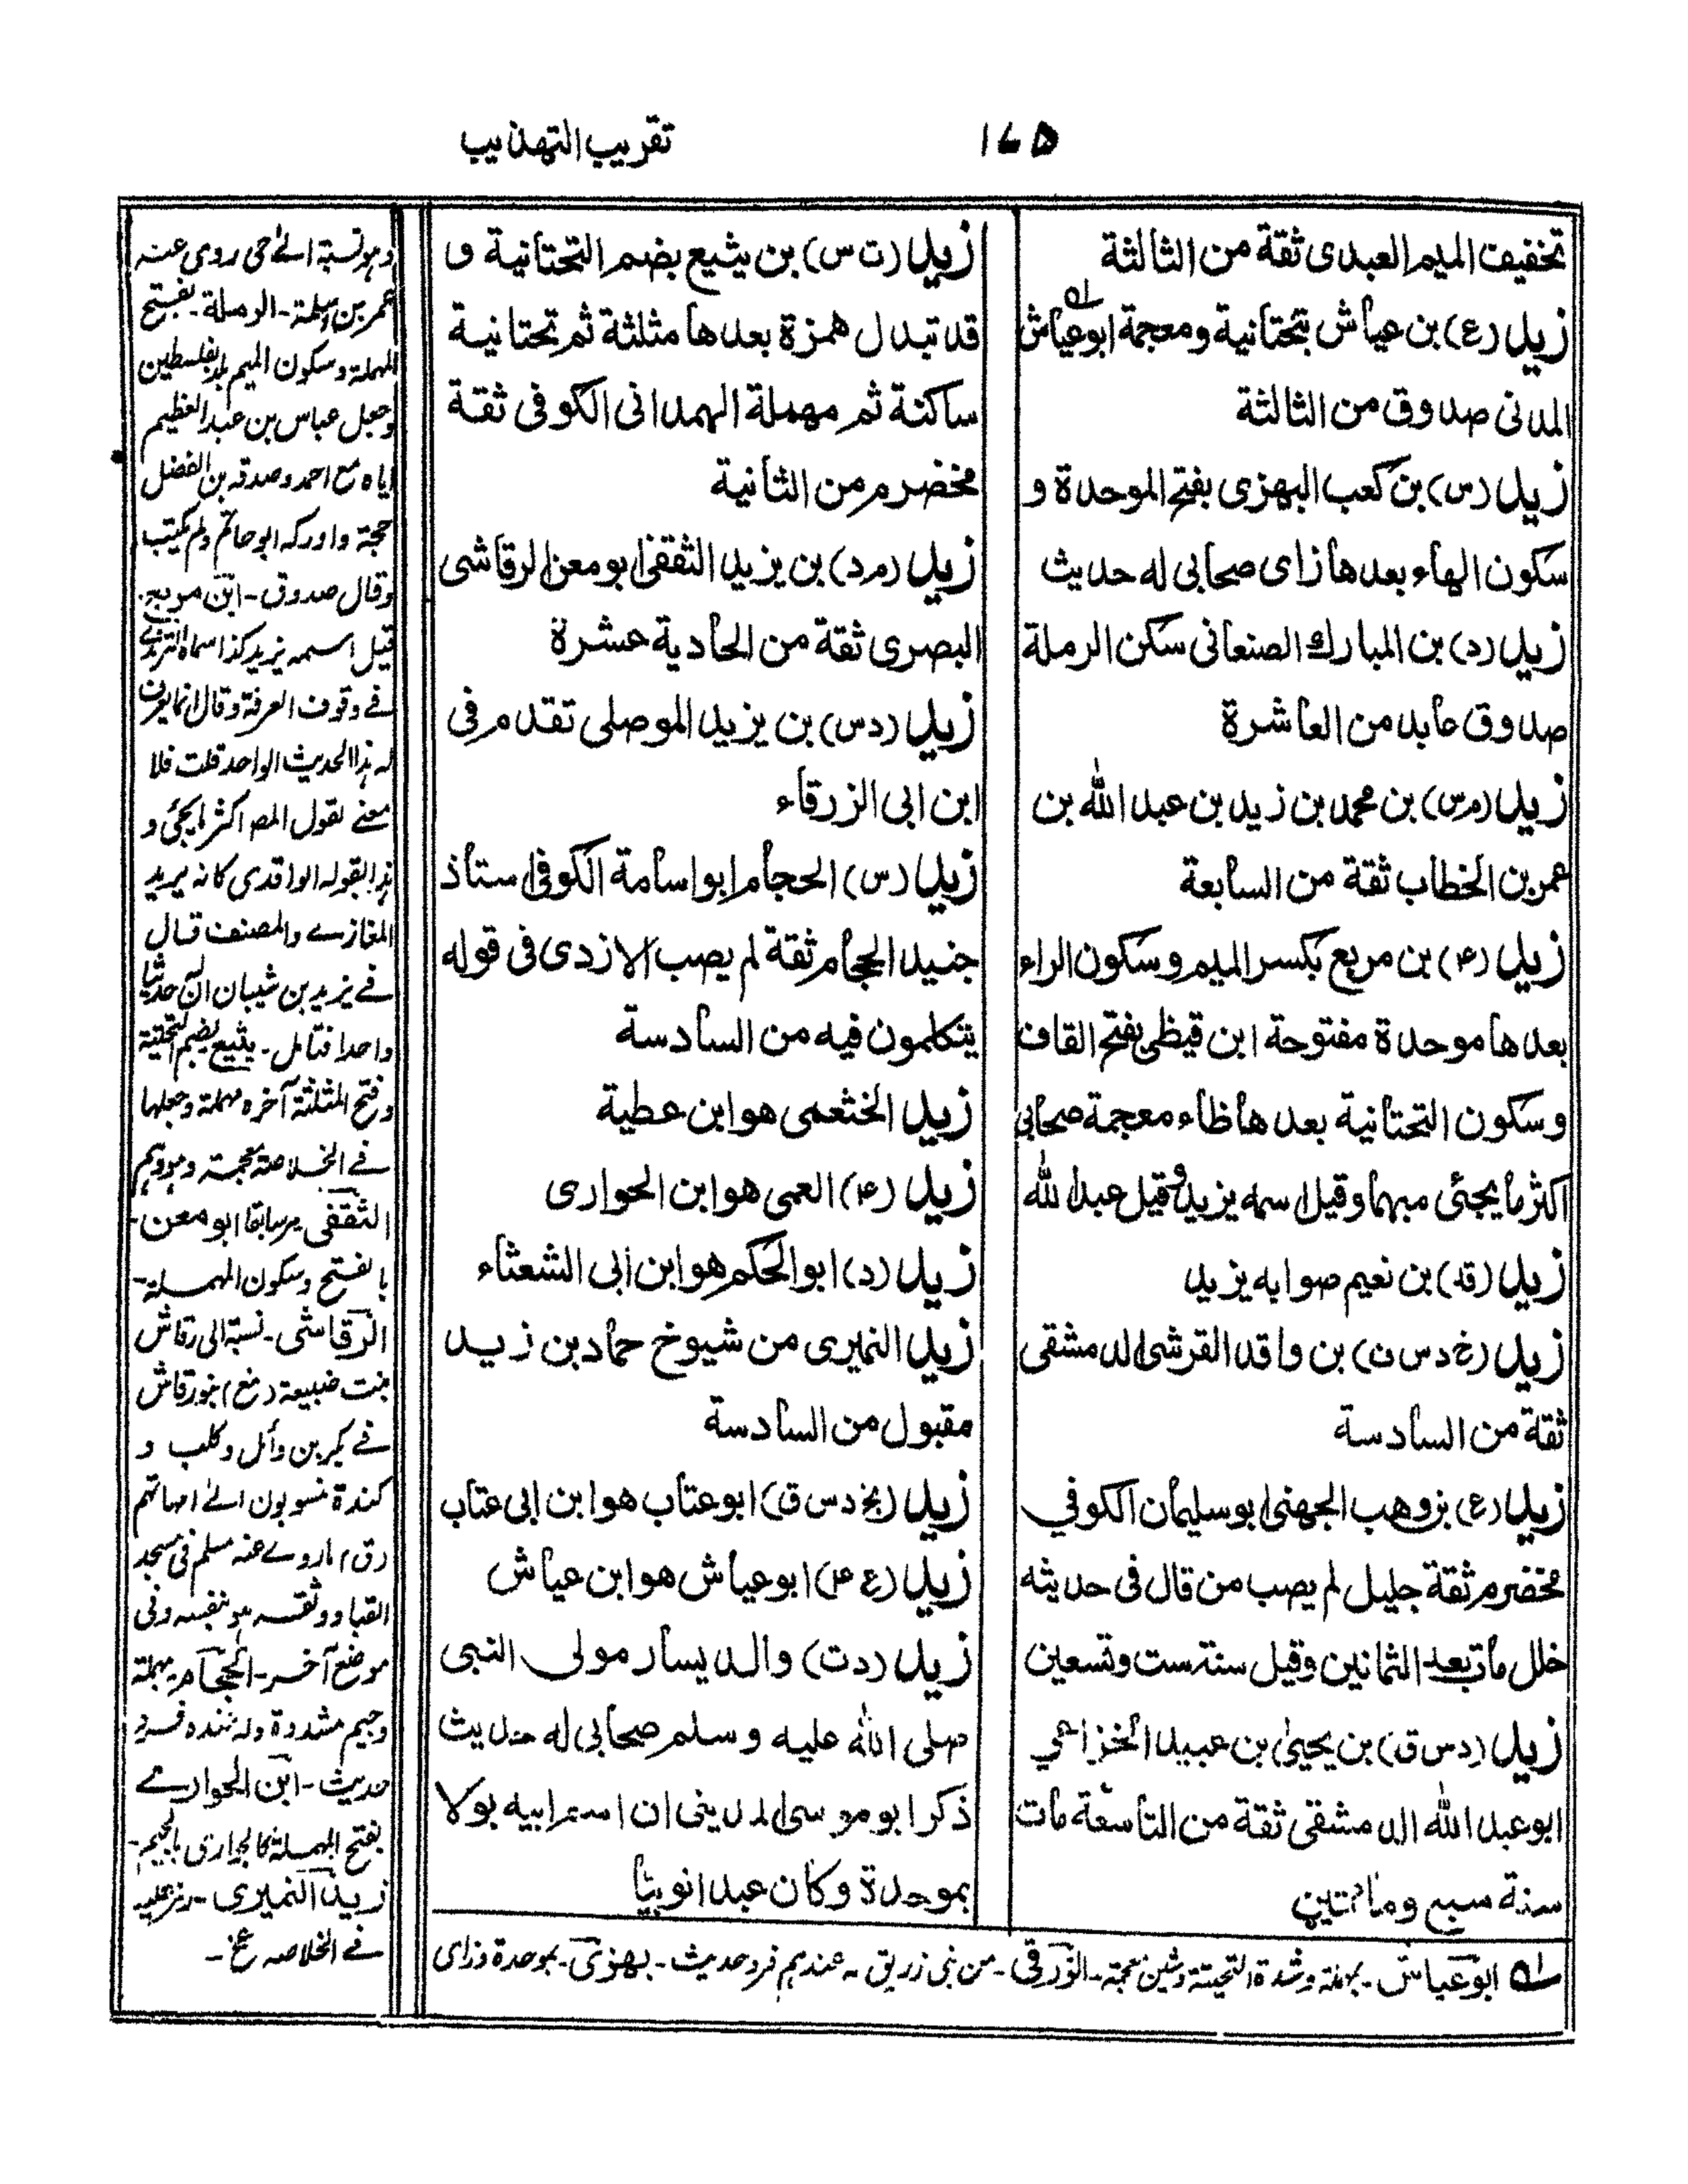 ١٧٥
تقريب التهذيب
تخفيف الميم العبدى ثقة من الثالثة
زيد (ع) بن عياش بتحتانية ومعجمة ابوعياش
المدنى صدوق من الثالثة
زيد (س) بن كعب البهزى بفتح الموحدة و
سكون الهاء بعدها زاى صحابى له حديث
زيد (د) بن المبارك الصنعانى سكن الرملة
صدوق عابد من العاشرة
زيد (م س) بن محمد بن زيد بن عبد الله بن
عمر بن الخطاب ثقة من السابعة
زيد (ع) بن مربع بكسر الميم وسكون الراء
بعدها موحدة مفتوحة ابن قيظى بفتح القاف
وسكون التحتانية بعدها ظاء معجمة صحابى
اكثر ما يجئى مبهما وقيل اسمه يزيد وقيل عبد الله
زيد (قد) بن نعيم صوابه يزيد
زيد (خ د س ق) بن واقد القرشى الدمشقى
ثقة من السادسة
زيد (ع) بن وهب الجهنى ابو سليمان الكوفي
مخضرم ثقة جليل لم يصب من قال فى حديثه
خلل مات بعد الثمانين وقيل سنة ست وتسعين
زيد (د س ق) بن يحيى بن عبيد الخزاعي
ابو عبد الله الدمشقى ثقة من التاسعة مات
سنة سبع ومائتين
زيد (ت س) بن يثيع بضم التحتانية و
قد تبدل همزة بعدها مثلثة ثم تحتانية
ساكنة ثم مهملة الهمدانى الكوفى ثقة
مخضرم من الثانية
زيد (م د) بن يزيد الثقفى ابو معن الرقاشى
البصرى ثقة من الحادية عشرة
زيد (د س) بن يزيد الموصلى تقدم فى
ابن ابى الزرقاء
زيد (س) الحجام ابو اسامة الكوفى استاذ
جنيد الحجام ثقة لم يصب الازدى فى قوله
يتكلمون فيه من السادسة
زيد الخثعمى هو ابن عطية
زيد (۴) العمى هو ابن الحوارى
زيد (د) ابو الحكم هو ابن ابى الشعثاء
زيد النميرى من شيوخ حماد بن زيد
مقبول من السادسة
زيد (بخ د س ق) ابو عتاب هو ابن ابى عتاب
زيد (ع ۴) ابو عياش هو ابن عياش
زيد (د ت) والد يسار مولى النبى
صلى الله عليه وسلم صحابى له حديث
ذكر ابو موسى المدينى ان اسم ابيه بولا
بموحدة وكان عبدا نوبيا
وهو نسبة الے حى روى عنه
عمر بن سلمة - الرملة - بفتح
المهملة وسكون الميم بلد بفلسطين
وجعل عباس بن عبد العظيم
اياه مع احمد وصدقه بن الفضل
حجة وادركه ابوحاتم ولم يكتب
وقال صدوق - ابن مربع -
قيل اسمه يزيد كذا سماه الترمذے
فے وقوف العرفة وقال انما يعرف
له هذا الحديث الواحد قلت فلا
معنے لقول المص اكثر ما يجئى و
هذا بقوله الواقدى كانه يريد
المغازے والمصنف قال
فے يزيد بن شيبان ان حديثا
واحدا فتامل - يثيع بضم التحتية
وفتح المثلثة آخره مهملة وجعلها
فے الخلاصة معجمة وهو وهم
الثقفى مر سابقا ابو معن -
بالفتح وسكون المهملة -
الرقاشى - نسبة الى رقاش
بنت ضبيعة (مغ) بنو رقاش
فے بكر بن وائل وكلب و
كندة منسوبون الے امهاتهم
(ق) ما روے عنه مسلم فى مسجد
القبا ووثقه هو بنفسه وفى
موضع آخر - الحجام - بمهملة
وجيم مشددة وله عنده فرد
حديث - ابن الحوارے
بفتح المهملة كالجوارى بالجيم -
زيد النميرى - رمز عليه
فے الخلاصه عخ -
له ابو عياش - بمهملة وشدة التحتية وشين معجمة - الزرقى - من بنى زريق - عندهم فرد حديث - بهزى - بموحدة وزاى